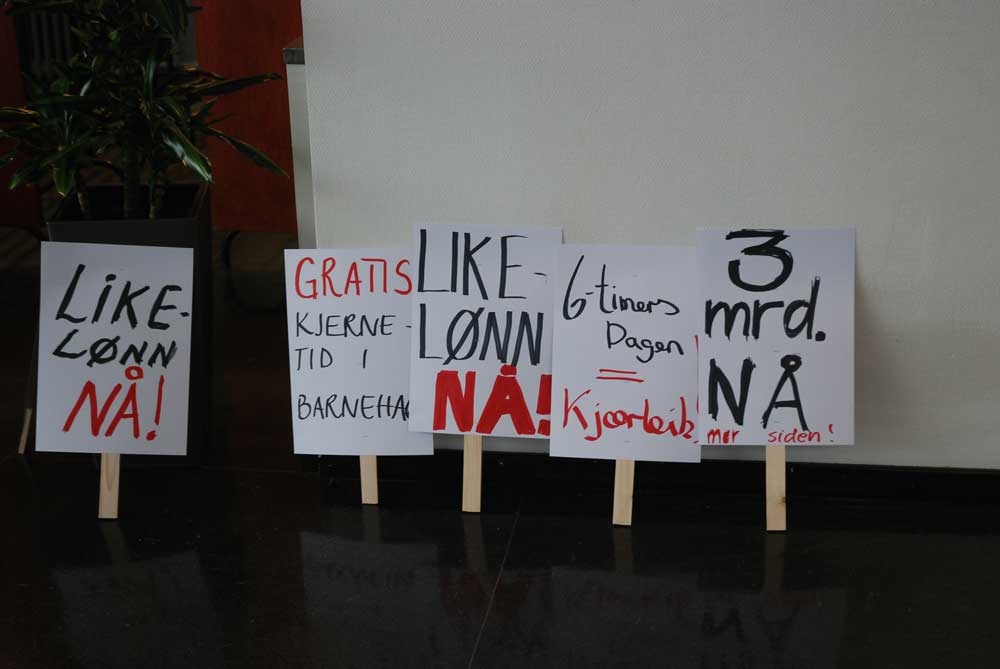 LIKE-
LØNN
NÅ!
GRATIS
KJERNE-
TID I
BARNEHA
LIKE-
LØNN
NÅ!
6-timers
Dagen
=
Kjærleik!
3
mrd.
NÅ
mer siden!